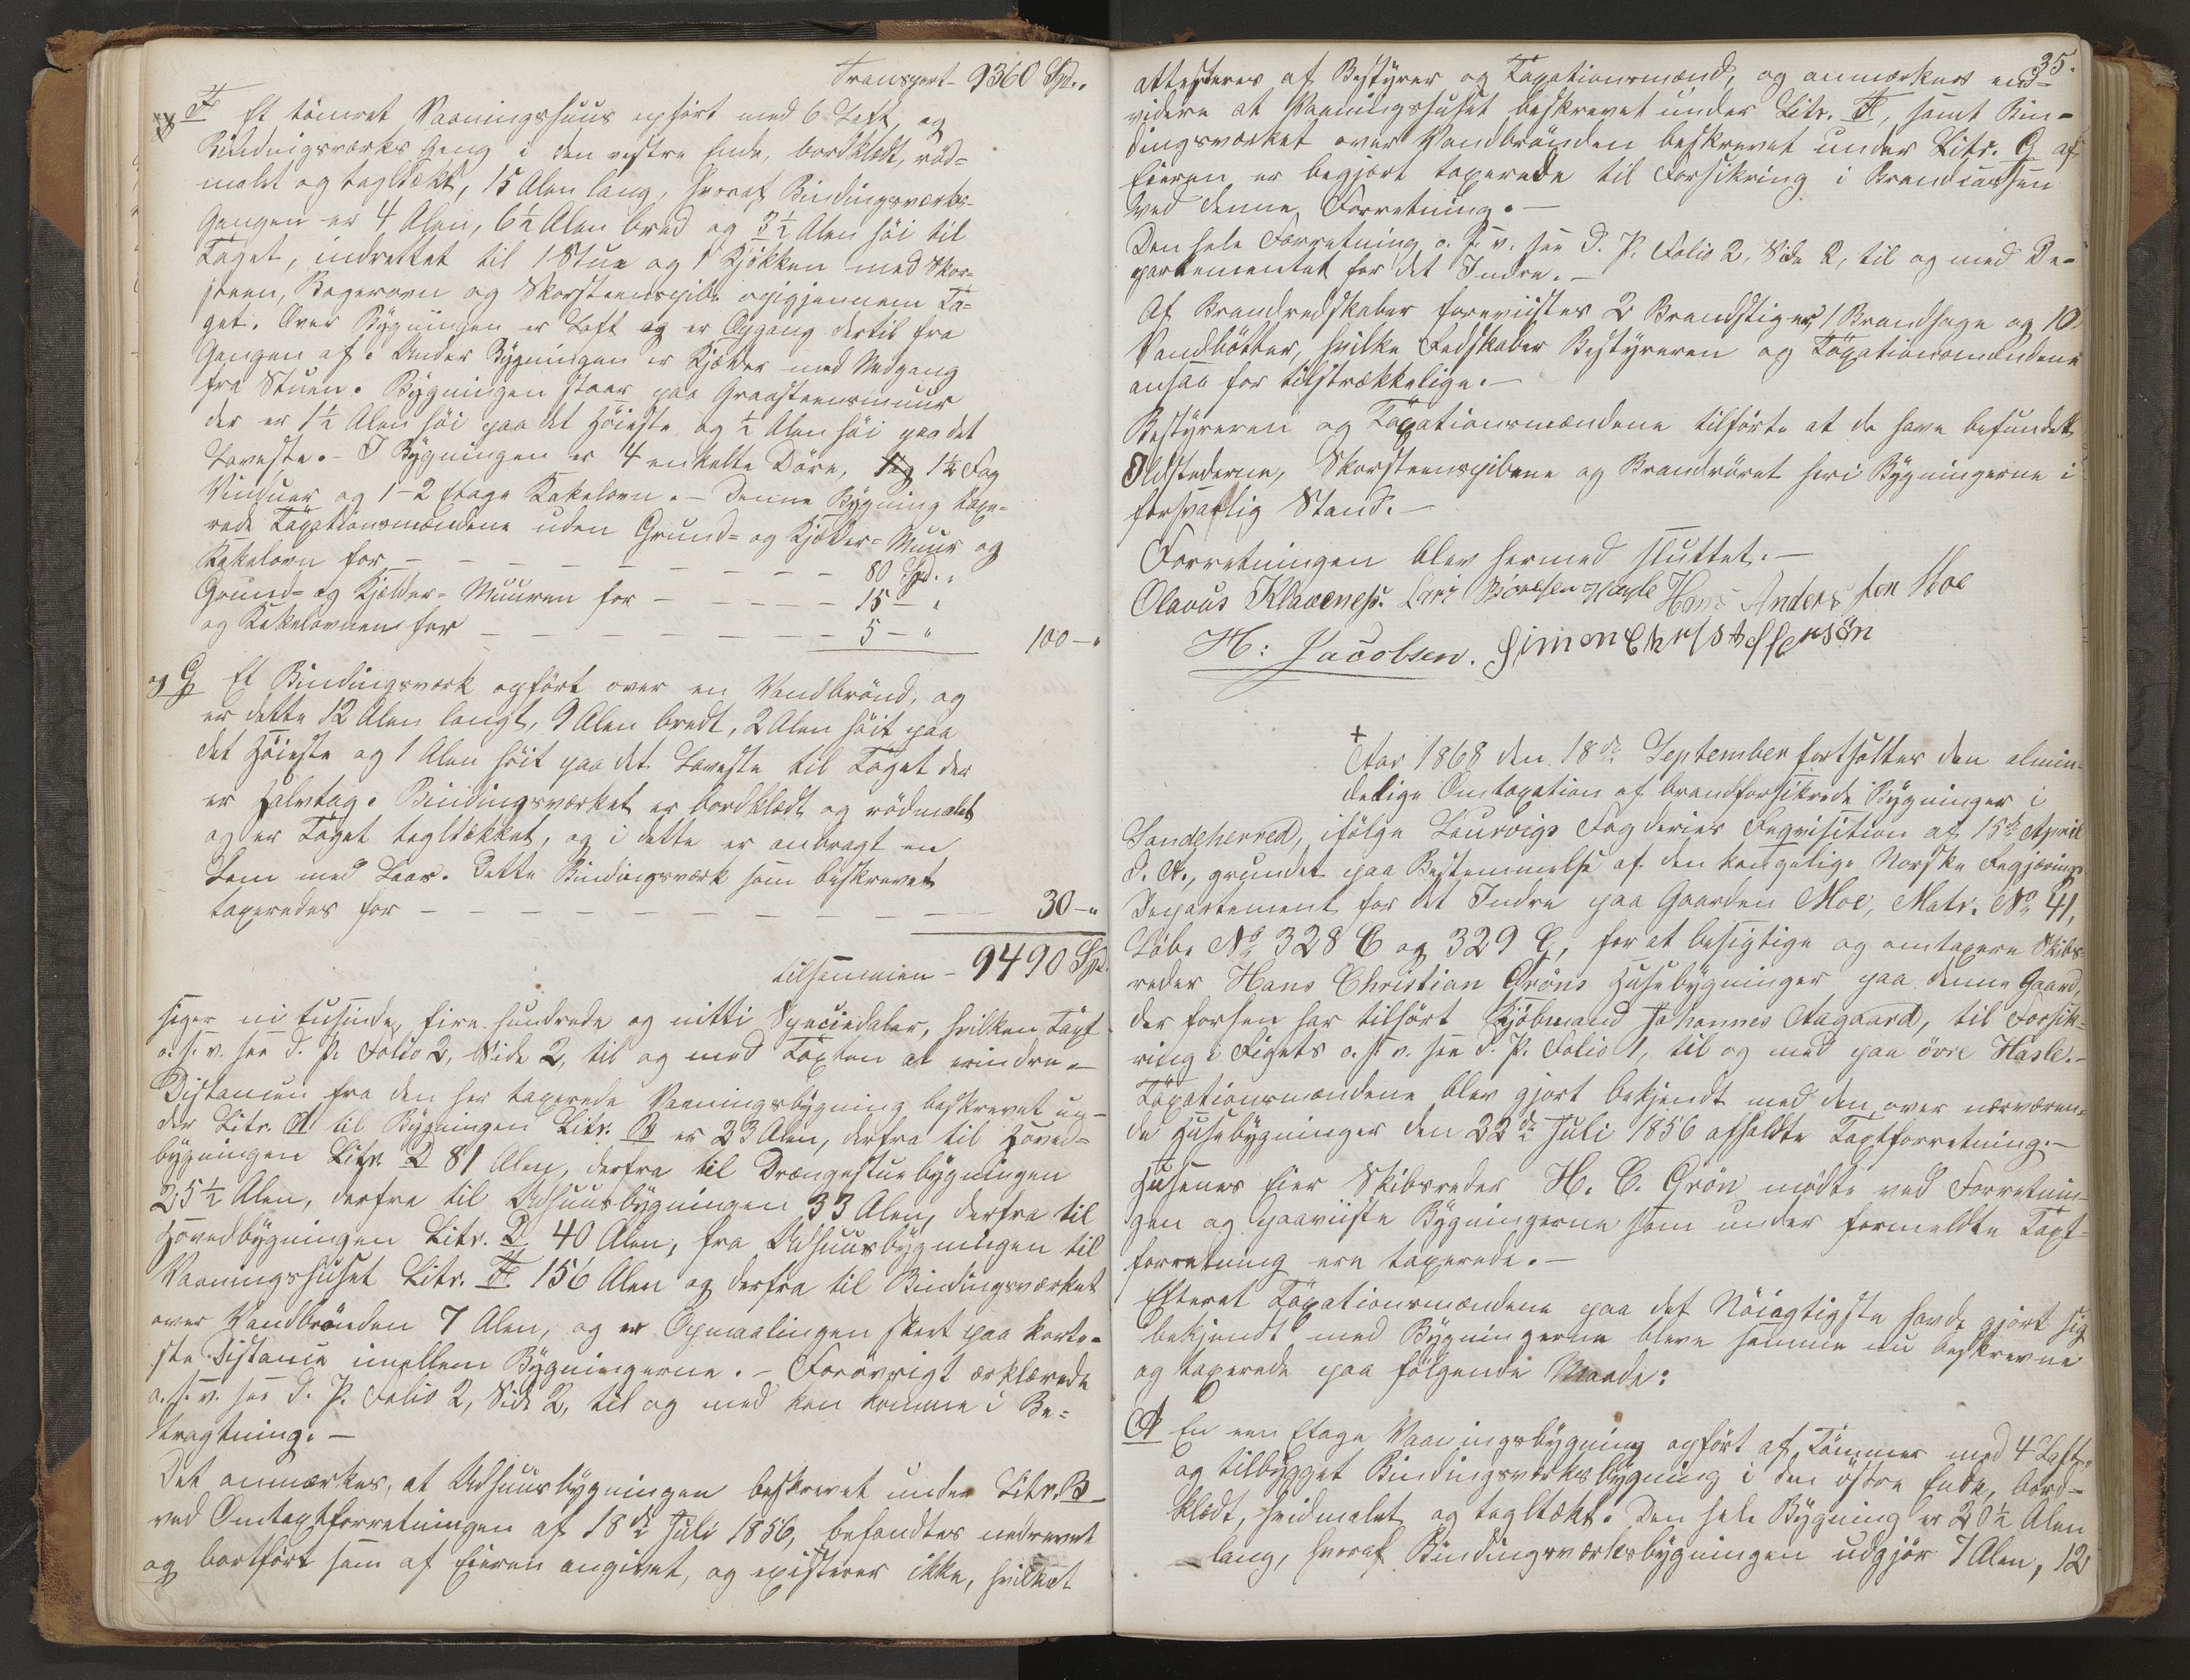 Transport - 9360 Spd. „
F Et tömret Vaaningshuus opfört med 6 Loft, og
Bindingsværks Gang i den vestre Ende, bordklædt, röd-
malet og tagltækt, 15 Alen lang, hvoraf Bindingsværks-
Gangen er 4 Alen, 6½ Alen bred og 3½ Alen höi til
Taget, indrettet til 1 Stue og 1 Kjökken med Skor-
steen, Bagerovn og Skorsteenspibe opigjennem Ta-
get. Over Bygningen er Loft og er Opgang dertil fra
Gangen af. Under Bygningen er Kjælder med Nedgang
fra Stuen. Bygningen staar paa Graasteensmuur
der er 1½ Alen höi paa det Höieste og ½ Alen höi paa det
Laveste. - I Bygningen er 4 enkelte Döre, 1½ Fag
Vinduer og 1 - 2 Etage Kakelovn. - Denne Bygning taxe-
rede Taxationsmændene uden Grund- og Kjælder-Muur og
Kakelovn for - - - - - - - - 80 Spd. „
Grund- og Kjælder-Muuren for - - - - - 15 - „
og Kakelovnen for - - - - - - - - 5 - „ 100 - „
og G Et Bindingsværk opfört over en Vandbrönd, og
er dette 12 Alen langt, 9 Alen bredt, 2 Alen höit paa
det Höieste og 1 Alen höit paa det Laveste til Taget der
er Halvtag. Bindingsværket er bordklædt og rödmalet
og er Taget tagltækket, og i dette er anbragt en
Lem med Laas. Dette Bindingsværk som beskrevet
taxeredes for - - - - - - - - - - - 30 - „
tilsammen - 9490 Spd.
siger ni tusinde, fire hundrede og nitti Speciedaler, hvilken Taxt
o. s. v. see d. P. Folio 2, Side 2, til og med Taxten at erindre. -
Distancen fra den her taxerede Vaaningsbygning beskrevet un-
der Litr. A til Bygningen Litr. B er 23 Alen, derfra til Hoved-
bygningen Litr. D 81 Alen, derfra til Drængestuebygningen
25½ Alen, derfra til Udhuusbygningen 33 Alen, derfra til
Hovedbygningen Litr. D 40 Alen, fra Udhuusbygningen til
Vaaningshuset Litr. F 156 Alen og derfra til Bindingsværket
over Vandbrönden 7 Alen, og er Opmaalingen skeet paa korte-
ste Distance imellem Bygningerne. - Forövrigt erklærede
o. s. v. see d. P. Folio 2, Side 2, til og med kan komme i Be-
tragtning. -
Det anmærkes, at Udhuusbygningen beskrevet under Litr. B
ved Omtaxtforretningen af 18de Juli 1856, befandtes nedrevet
og bortfört som af Eieren angivet, og existerer ikke, hvilket
35.
attesteres af Bestyrer og Taxationsmænd, og anmærkes end-
videre at Vaaningshuset beskrevet under Litr. F, samt Bin-
dingsværket over Vandbrönden beskrevet under Litr. G af
Eieren er begjært taxerede til Forsikring i Brandcassen
ved denne Forretning. -
Den hele Forretning o. s. v. see d. P. Folio 2, Side 2, til og med De-
partementet for det Indre. -
Af Brandredskaber foreviistes 2 Brandstiger, 1 Brandhage og 10
Vandbötter, hvilke Redskaber Bestyreren og Taxationsmændene
ansaa for tilstrækkelige. -
Bestyreren og Taxationsmændene tilförte at de have befundet
Ildstederne, Skorsteenspiberne og Brandröret heri Bygningerne i
forsvarlig Stand. -
Forretningen blev hermed sluttet. -
Olavus Klavenes. Lars Börresen Hasle Hans Anders sen Moe
H: Jacobsen. Simon Christoffersön
+
Aar 1868 den 18de September fortsattes den almin-
delige Omtaxation af brandforsikrede Bygninger i
Sandeherred, ifölge Laurvigs Fogderies Reqvisition af 15de April
d. A., grundet paa Bestemmelse af den kongelige Norske Regjerings
Departement for det Indre paa Gaarden Moe, Matr. No 41,
Löbe No 328 C og 329 C, for at besigtige og omtaxere Skibs-
reder Hans Christian Gröns Husebygninger paa denne Gaard,
der forhen har tilhört Kjöbmand Johannes Aagaard, til Forsik-
ring i Rigets o. s. v. see d. P. Folio 1, til og med paa övre Hasle. -
Taxationsmændene blev gjort bekjendt med den over nærværen-
de Husebygninger den 22de Juli 1856 afholdte Taxtforretning. -
Husenes Eier Skibsreder H. C. Grön mödte ved Forretnin-
gen og paaviiste Bygningerne som under formeldte Taxt-
forretning ere taxerede. -
Efterat Taxationsmændene paa det Nöiagtigste havde gjort sig
bekjendt med Bygningerne bleve samme nu beskrevne
og taxerede paa fölgende Maade:
A En een Etage Vaaningsbygning opfört af Tömmer med 4 Loft,
og tilbygget Bindingsværksbygning i den östre Ende, bord-
klædt, hvidmalet og tagltækt. Den hele Bygning er 20½ Alen
lang, hvoraf Bindingsværksbygningen udgjör 7 Alen, 12